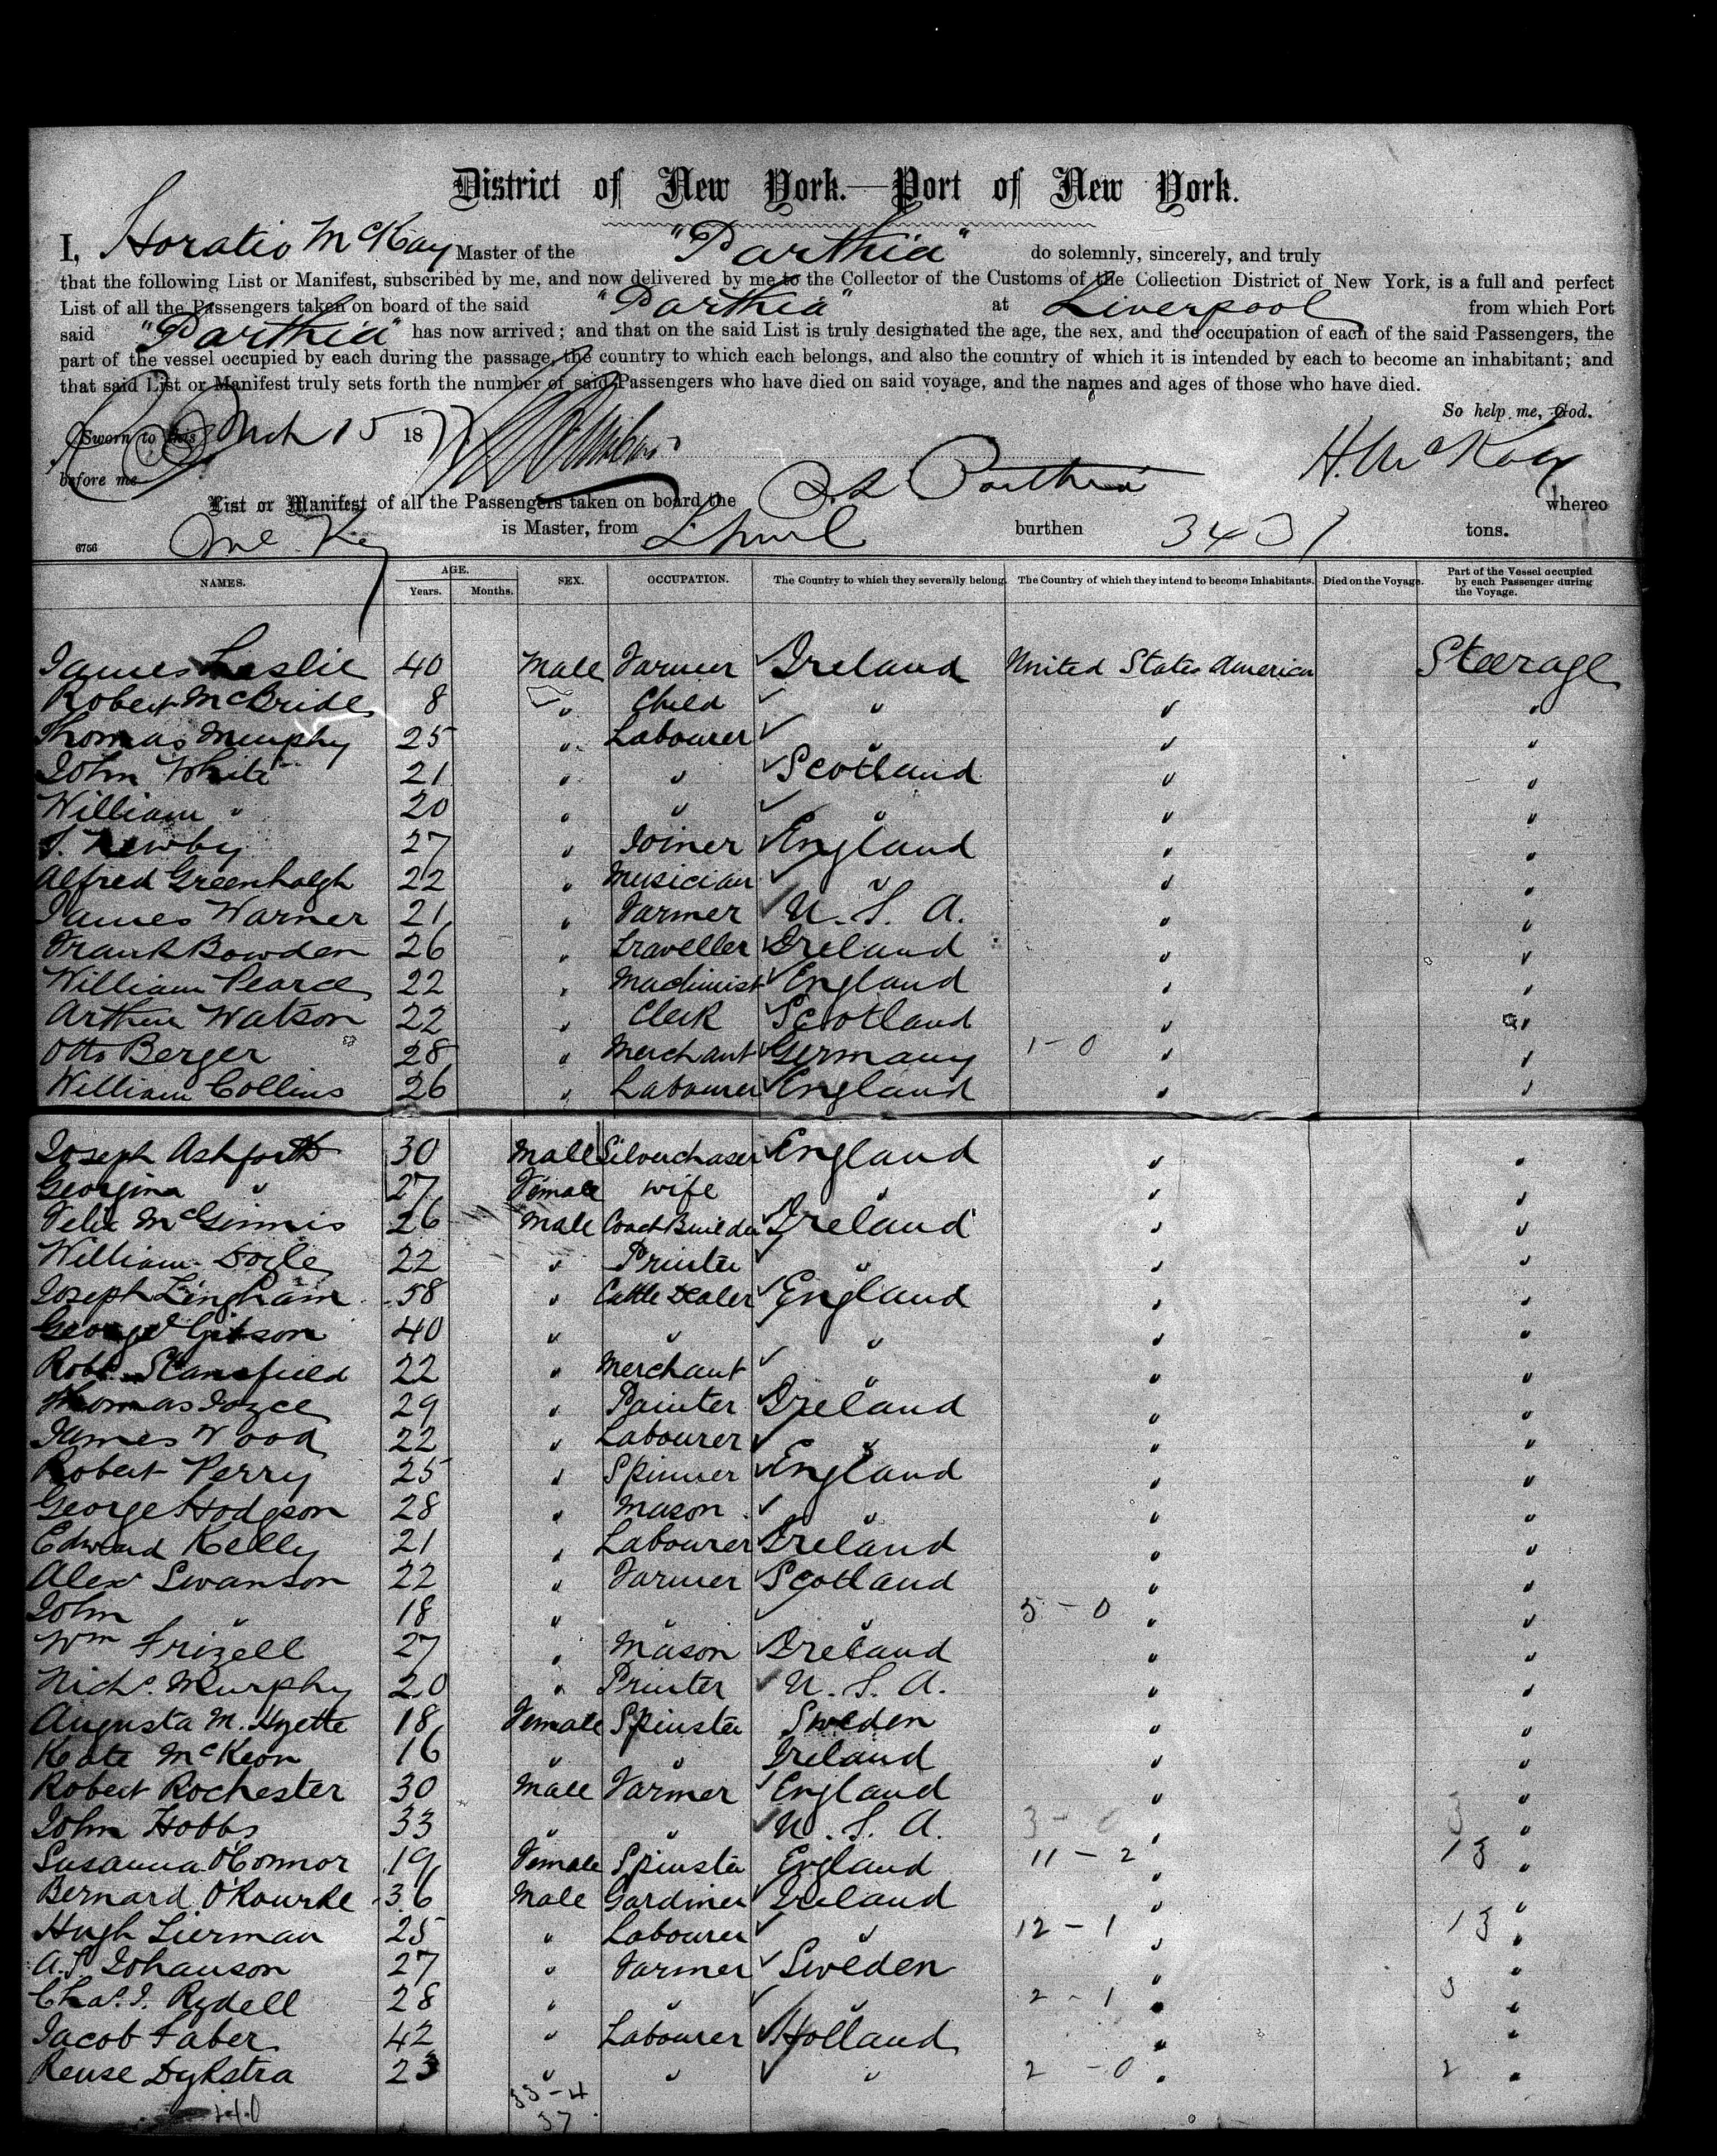 District of New York.—Port of New York.
I, Horatio McKay Master of the "Parthia" do solemnly, sincerely, and truly
that the following List or Manifest, subscribed by me, and now delivered by me to the Collector of the Customs of the Collection District of New York, is a full and perfect
List of all the Passengers taken on board of the said "Parthia" at Liverpool from which Port
said "Parthia" has now arrived; and that on the said List is truly designated the age, the sex, and the occupation of each of the said Passengers, the
part of the vessel occupied by each during the passage, the country to which each belongs, and also the country of which it is intended by each to become an inhabitant; and
that said List or Manifest truly sets forth the number of said Passengers who have died on said voyage, and the names and ages of those who have died.
So help me, God.
Sworn to this Mch 15 18 H. McKay
before me
List or Manifest of all the Passengers taken on board the S.S. Parthia whereo
is Master, from L'pool burthen 3431 tons.
6756
NAMES. AGE. Years. Months. SEX. OCCUPATION. The Country to which they severally belong. The Country of which they intend to become Inhabitants. Died on the Voyage. Part of the Vessel occupied by each Passenger during the Voyage.
James Leslie 40 Male Farmer Ireland United States America Steerage
Robert McBride 8 " Child " " "
Thomas Murphy 25 " Labourer " " "
John White 21 " " Scotland " "
William " 20 " " " " "
J. Newby 27 " Joiner England " "
Alfred Greenhalgh 22 " Musician " " "
James Warner 21 " Farmer U.S.A. " "
Frank Bowden 26 " Traveller Ireland " "
William Pearce 22 " Machinist England " "
Arthur Watson 22 " Clerk Scotland " "
Otto Berger 28 " Merchant Germany 1-0 " "
William Collins 26 " Labourer England " "
Joseph Ashforth 30 Male Silverchaser England " "
Georgina " 27 Female wife " " "
Felix McGinnis 26 Male Coach Builder Ireland " "
William Doyle 22 " Printer " " "
Joseph Lingham 58 " Cattle Dealer England " "
George Gibson 40 " " " " "
Robt. Stansfield 22 " Merchant " " "
Thomas Joyce 29 " Painter Ireland " "
James Wood 22 " Labourer " " "
Robert Perry 25 " Spinner England " "
George Hodgson 28 " Mason " " "
Edward Kelly 21 " Labourer Ireland " "
Alex Swanson 22 " Farmer Scotland " "
John " 18 " " " 5-0 " "
Wm Frizell 27 " Mason Ireland " "
Nichs. Murphy 20 " Printer U.S.A. " "
Augusta M. Hyette 18 Female Spinster Sweden " "
Kate McKeon 16 " " Ireland " "
Robert Rochester 30 Male Farmer England " "
John Hobbs 33 " " U.S.A. 3-0 " 3 "
Susanna O'Connor 19 Female Spinster England 11-2 " 13 "
Bernard O'Rourke 36 Male Gardiner Ireland " "
Hugh Lierman 25 " Labourer " 12-1 " 13 "
A.S. Johanson 27 " Farmer Sweden " "
Chas. J. Rydell 28 " " " 2-1 " 3 "
Jacob Faber 42 " Labourer Holland " "
Reuse Dykstra 23 " " " 2-0 " 2 "
33-4
37